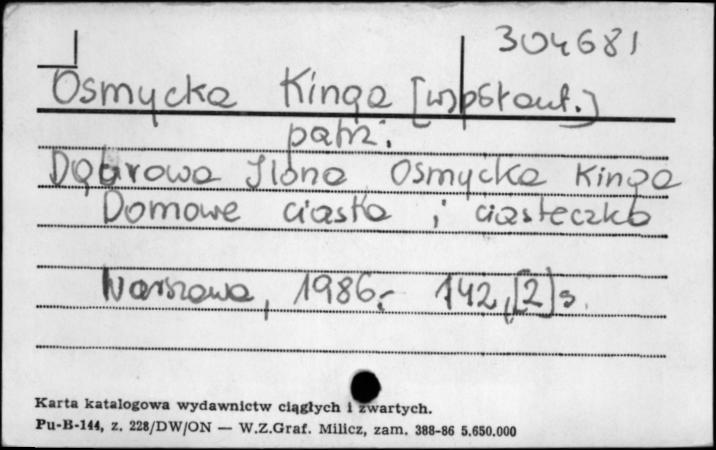 304681
Osmycka Kinga [współ aut.]
patrz:
Dąbrowa Ilona, Osmycka Kinga
Domowe ciasta i ciasteczka
Warszawa, 1986.- 142,[2] s.
Karta katalogowa wydawnictw ciągłych i zwartych.
Pu-B-144, z. 228/DW/ON — W.Z.Graf. Milicz, zam. 388-86 5.650.000